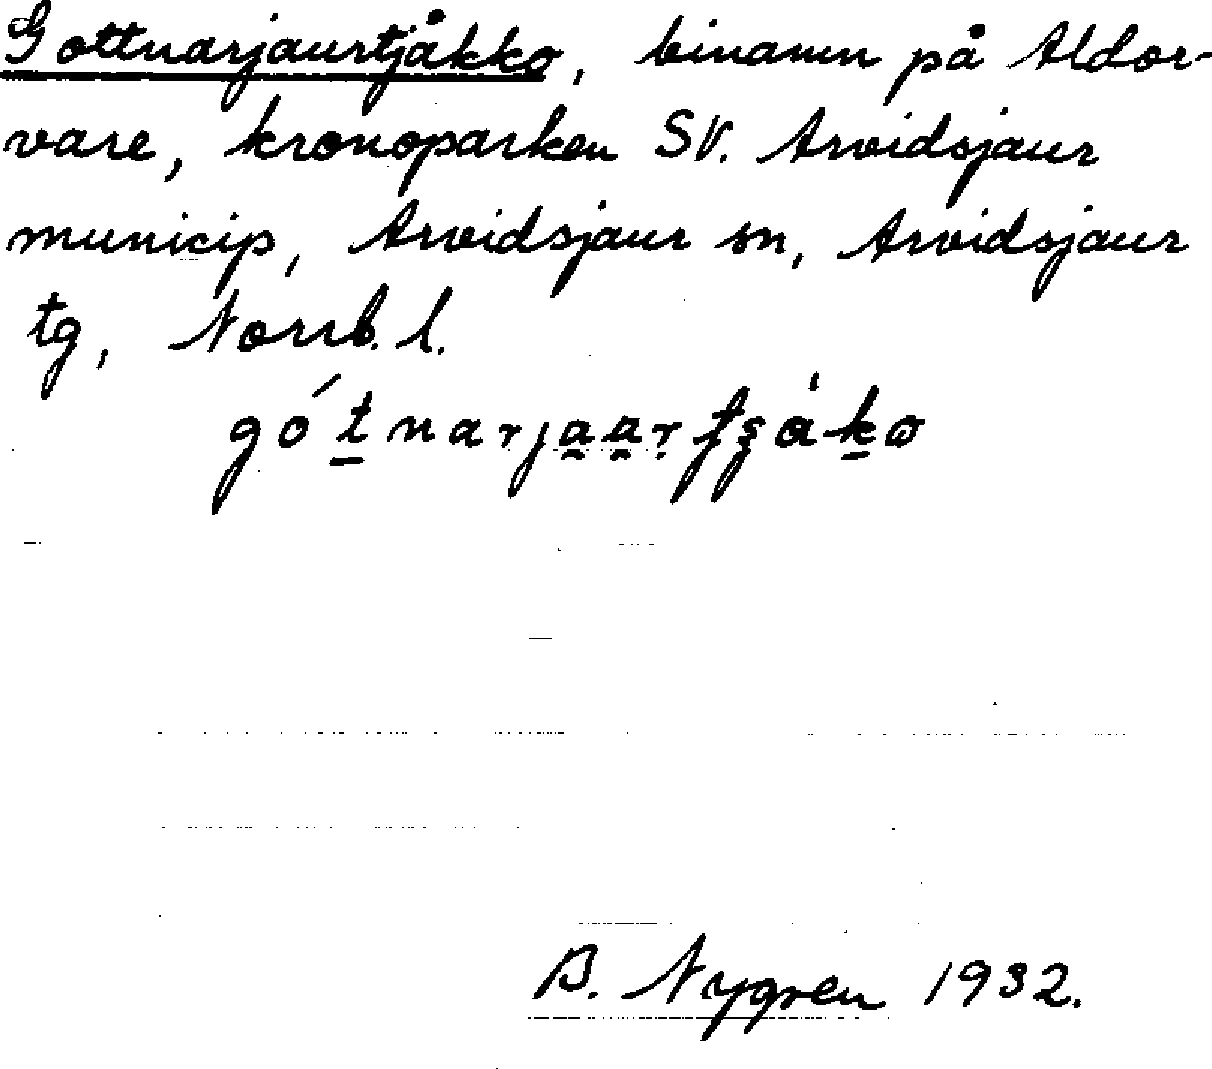 Gottnarjaurtjåkko, binamn på Aldor-
vare, kronoparken SV. Arvidsjaur
municip, Arvidsjaur sn, Arvidsjaur
tg, Norrb. l.
gótnarjaartʂåko
B. Nygren 1932.